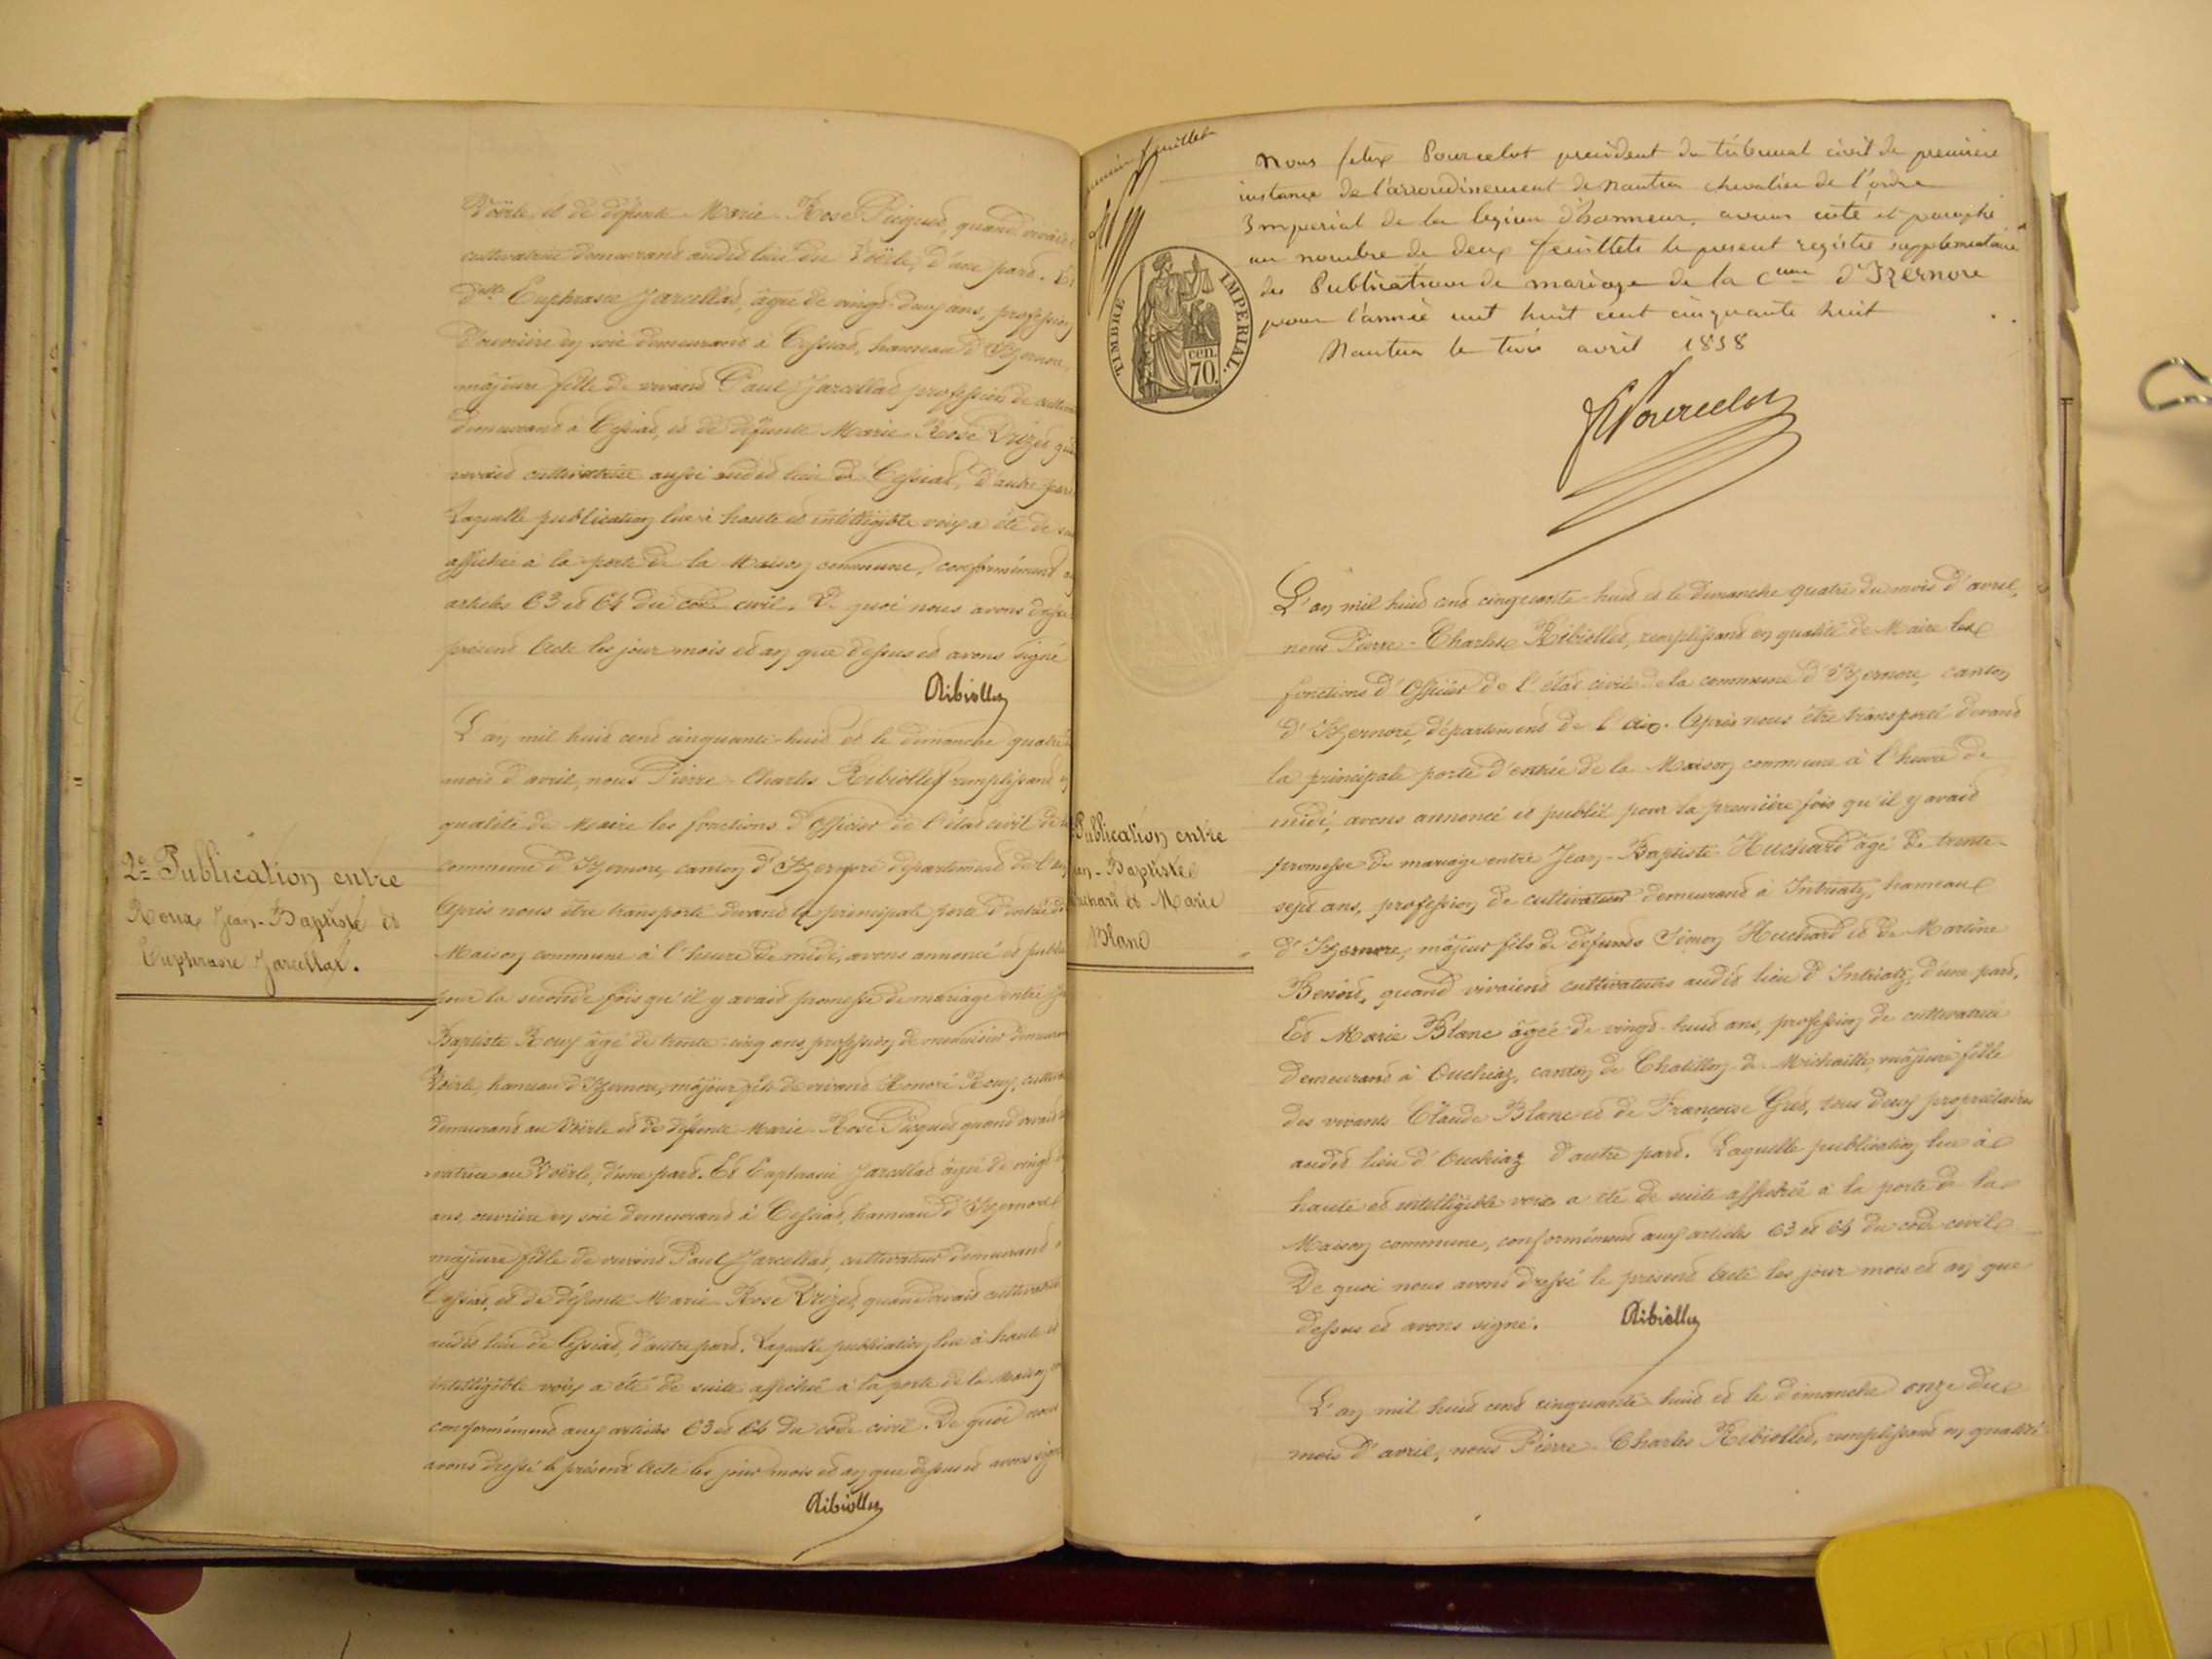 Voërle, et de défunte Marie-Rose Picquet, quand vivait
cultivatrice demeurant audit lieu du Voërle, d'une part. Et
Dlle Euphrasie Jarcellat, âgée de vingt-deux ans, profession
d'ouvrière en soie demeurant à Cessiat, hameau d'Izernore,
majeure fille de vivant Paul Jarcellat profession de
demeurant à Cessiat, et de défunte Marie-Rose Drizet
vivait cultivatrice aussi audit lieu de Cessiat, d'autre part
Laquelle publication lue à haute et intelligible voix a été de
affichée à la porte de la Maison commune, conformément
articles 63 et 64 du code civil. De quoi nous avons
présent Acte les jour mois et an que dessus et avons signé
Ribiollet
2e Publication entre
Roux Jean-Baptiste et
Euphrasie Jarcellat.
L'an mil huit cent cinquante-huit et le dimanche quatre
mois d'avril, nous Pierre-Charles Ribiollet remplissant
qualité de Maire les fonctions d'Officier de l'état civil de
commune d'Izernore, canton d'Izernore département de l'Ain
Après nous être transporté devant la principale porte d'entrée de
Maison commune à l'heure de midi, avons annoncé et publié
pour la seconde fois qu'il y avait promesse de mariage entre
Baptiste Roux âgé de trente-cinq ans, profession de menuisier
Voërle, hameau d'Izernore, majeur fils de vivant Honoré Roux,
demeurant au Voërle et de défunte Marie-Rose Picquet quand vivait
vatrice au Voërle, d'une part. Et Euphrasie Jarcellat âgée de vingt
ans, ouvrière en soie demeurant à Cessiat, hameau d'Izernore
majeure fille de vivant Paul Jarcellat, cultivateur demeurant à
Cessiat, et de défunte Marie-Rose Drizet, quand vivait cultivatrice
audit lieu de Cessiat, d'autre part. Laquelle publication lue à haute et
intelligible voix a été de suite affichée à la porte de la Maison
conformément aux articles 63 et 64 du code civil. De quoi nous
avons dressé le présent Acte les jour mois et an que dessus et avons signé
Ribiollet
feuillet
Nous felix Pourcelot president du tribunal civil de premiere
instance de l'arrondissement de Nantua chevalier de l'ordre
Imperial de la legion d'honneur, avons coté et paraphé
au nombre de deux feuillets le present registre supplementaire
des Publications de mariage de la Cune d'Izernore
pour l'année mil huit cent cinquante huit
Nantua le trois avril 1858
TIMBRE IMPERIAL.
70 cen.
Pourcelot
Publication entre
Jean-Baptiste
Huchard et Marie
Blanc
L'an mil huit cent cinquante-huit et le dimanche quatre du mois d'avril,
nous Pierre-Charles Ribiollet, remplissant en qualité de Maire les
fonctions d'Officier de l'état civil de la commune d'Izernore, canton
d'Izernore, département de l'Ain. Après nous être transporté devant
la principale porte d'entrée de la Maison commune à l'heure de
midi, avons annoncé et publié pour la première fois qu'il y avait
promesse de mariage entre Jean-Baptiste Huchard âgé de trente-
sept ans, profession de cultivateur demeurant à Intriatz, hameau
d'Izernore, majeur fils de défunts Simon Huchard et de Martine
Benoit, quand vivaient cultivateurs audit lieu d'Intriatz, d'une part,
Et Marie Blanc âgée de vingt-huit ans, profession de cultivatrice
demeurant à Ochiaz, canton de Chatillon-de-Michaille, majeure fille
des vivants Claude Blanc et de Françoise Gros, tous deux propriétaires
audit lieu d'Ochiaz d'autre part. Laquelle publication lue à
haute et intelligible voix a été de suite affichée à la porte de la
Maison commune, conformément aux articles 63 et 64 du code civil
De quoi nous avons dressé le présent Acte les jour mois et an que
dessus et avons signé. Ribiollet
L'an mil huit cent cinquante-huit et le dimanche onze du
mois d'avril, nous Pierre-Charles Ribiollet, remplissant en qualité